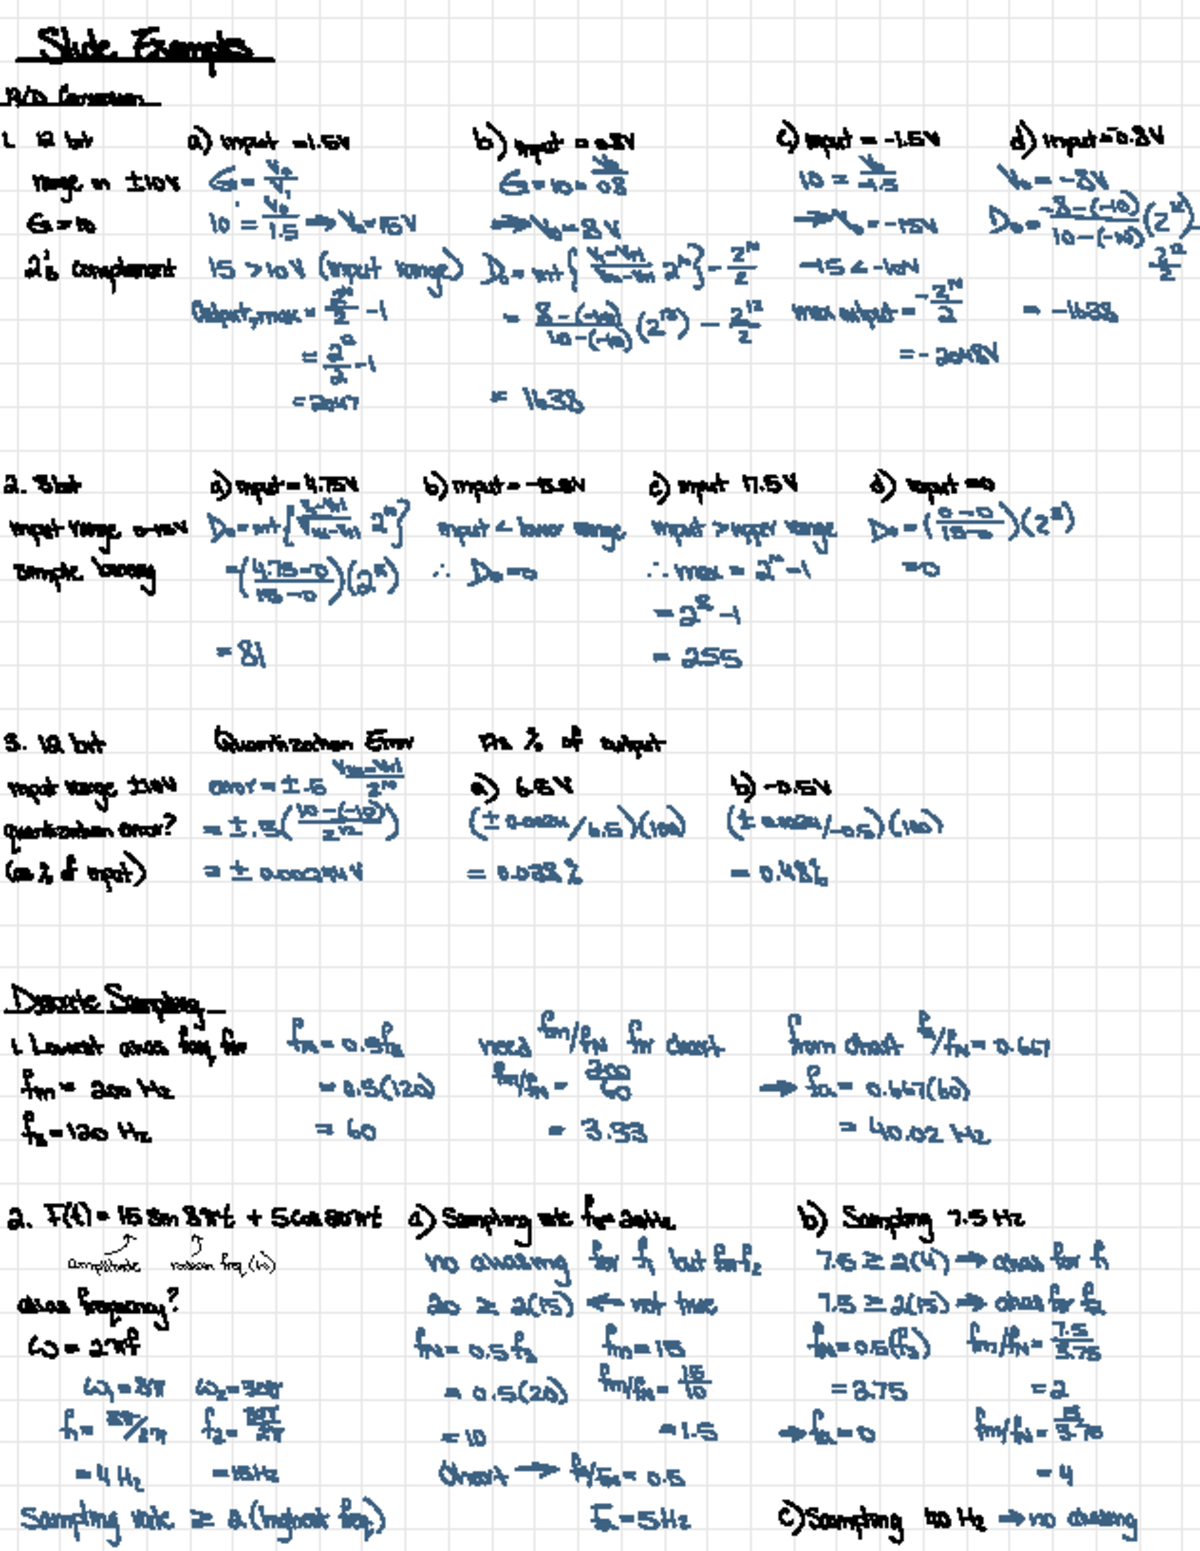 Slide Examples
A/D Conversion
1. 12 bit
range in ±10V
G = 10
2's complement
a) input = 1.5V
G = Vo/Vi
10 = Vo/1.5 → Vo = 15V
15 > 10V (input range)
Output, max = 2^n/2 - 1
= 2^12/2 - 1
= 2047
b) input = 0.8V
G = 10 = Vo/0.8
→ Vo = 8V
= 8-(-10)/10-(-10) (2^12) - 2^12/2
= 1638
c) input = -1.5V
10 = Vo/-1.5
→ Vo = -15V
-15 < -10V
max output = -2^n/2
= -2048V
d) input = -0.8V
Vo = -8V
Do = -8-(-10)/10-(-10) (2^12) - 2^12/2
= -1638
2. 8 bit
input range 0-15V
simple binary
a) input = 4.75V
= (4.75-0/15-0)(2^8)
= 81
b) input =
input < lower range
∴ Do = 0
c) input 17.5V
input > upper range
∴ max = 2^n - 1
= 2^8 - 1
= 255
d) input = 0
Do = (0-0/15-0)(2^8)
= 0
3. 12 bit
input range ±10V
quantization error?
(as % of input)
Quantization Error
= ±.5(10-(-10)/2^12)
As % of output
a) 6.5V
(± 0.0024/6.5)(100)
= 0.038%
b) -0.5V
(± 0.0024/-0.5)(100)
= 0.48%
Discrete Sampling
1. Lowest alias freq for
fm = 200 Hz
fs = 120 Hz
fN = 0.5fs
= 0.5(120)
= 60
need fm/fN for chart
fm/fN = 200/60
= 3.33
from chart fa/fN = 0.667
→ fa = 0.667(60)
= 40.02 Hz
2. F(t) = 15 sin 8πt + 5 cos 30πt
amplitude
alias frequency?
ω = 2πf
ω1 = 8π ω2 = 30π
f1 = 8π/2π f2 = 30π/2π
= 4 Hz = 15 Hz
Sampling rate ≥ 2 (highest freq)
a) Sampling rate fs = 20Hz
no aliasing for f1 but for f2
20 ≥ 2(15) ← not true
fN = 0.5fs fm = 15
= 0.5(20) fm/fN = 15/10
= 10 = 1.5
Chart → fa/fN = 0.5
fa = 5Hz
b) Sampling 7.5 Hz
7.5 ≥ 2(4) → alias for f1
7.5 ≥ 2(15) → alias for f2
fN = 0.5(fs) fm/fN = 7.5/3.75
= 3.75 = 2
→ fa = 0 fm/fN = 15/3.75
= 4
c) Sampling Hz → no aliasing